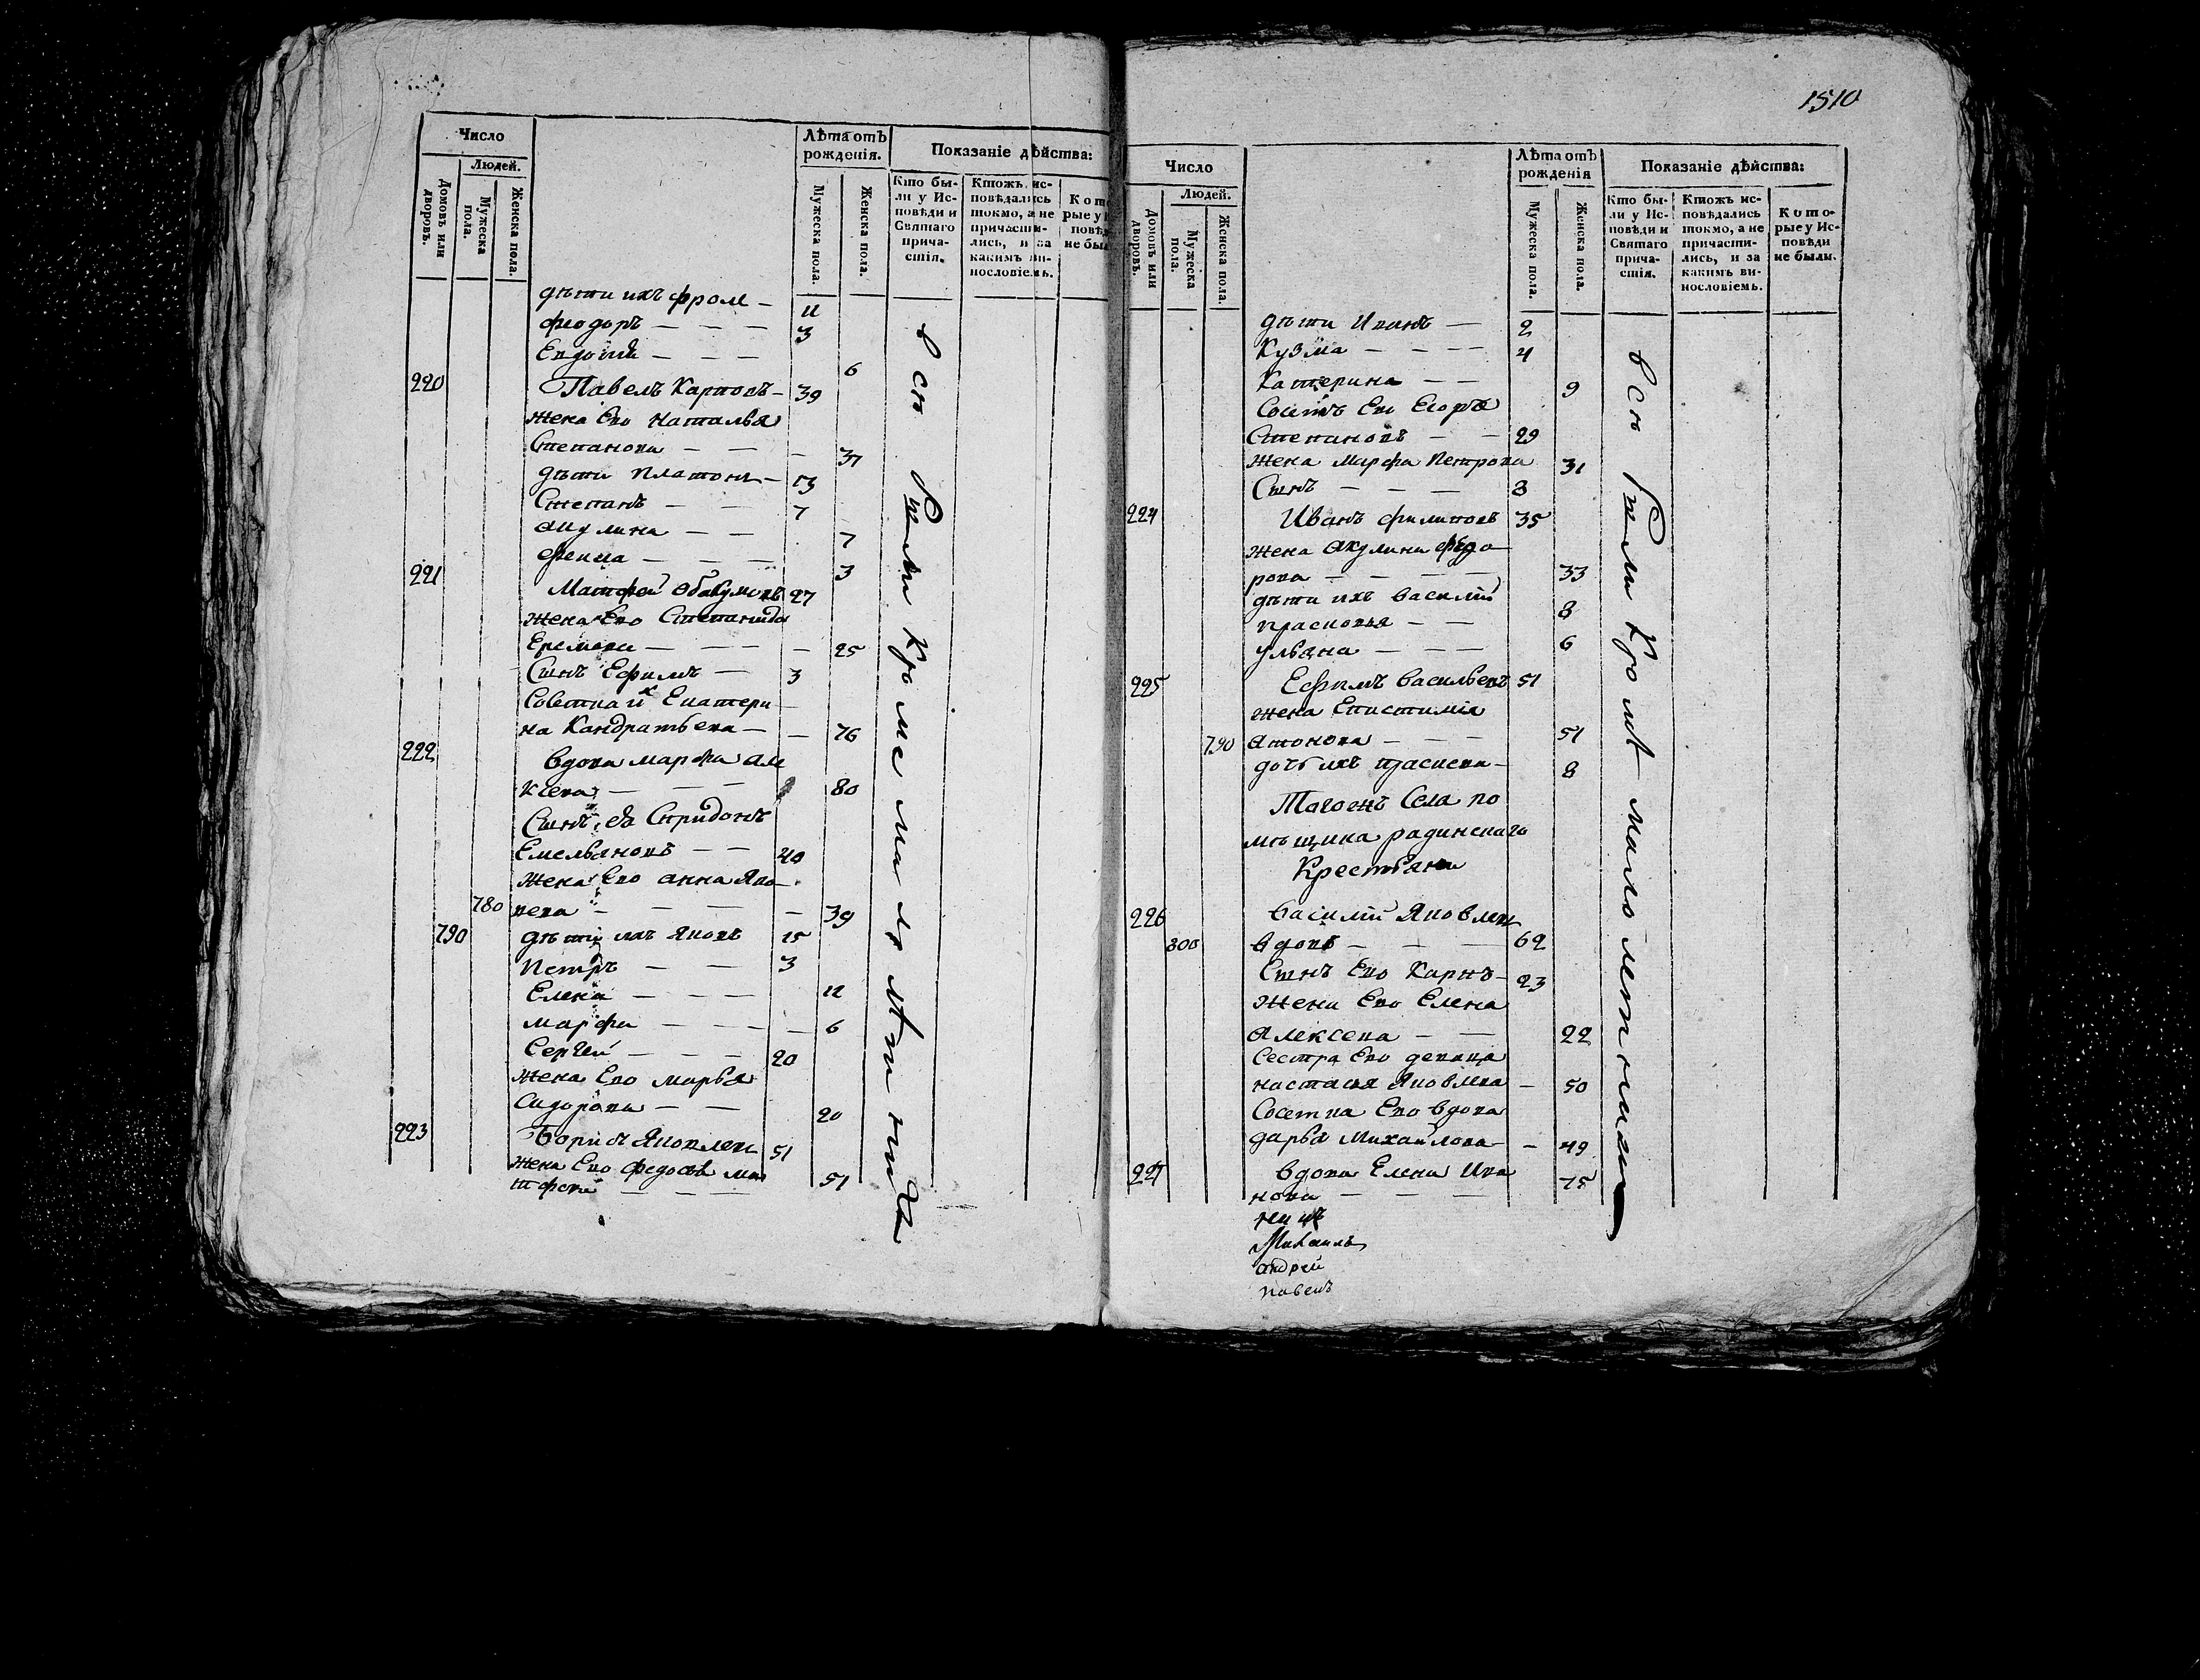 Число
Людей.
Домовъ или дворовъ.
Мужеска пола.
Женска пола.
Лѣта отъ рожденія.
Мужеска пола.
Женска пола.
Показаніе дѣйства:
Кто были у Исповѣди и Святаго причастія.
Ктожъ исповѣдались токмо, а не причастились, и за какимъ винословіемъ.
дѣти ихъ фролъ — 11
феодоръ — — — 3
Евдокия — — — 6
220 Павелъ Карповъ — 39
жена Ево Наталья
Степанова — — — 37
дѣти Платонъ — 13
Степанъ — — 7
акулина — — 7
фекла — — — 3
221 Матфей Абакумовъ 27
жена Ево Степанида
Еремеева — — — 25
Сынъ Ефимъ — 3
Екатери
на Кандратьева — — 76
222 вдова марфа але
ксева — — — 80
Сынъ ея Спридонъ
Емельяновъ — — 40
жена Ево анна Яко—
780 вева — — — — 39
790 дѣти ихъ Яковъ 15
Петръ — — 3
Елена — — — 11
марфа — — — — 6
Сергей — — — 20
жена Ево марья
Сидорова — — 20
223 Борисъ Яковлевъ 51
жена Ево Федосья ма
тфева — — — 51
все были кроме малолѣтнихъ
1510
Число
Людей.
Домовъ или дворовъ.
Мужеска пола.
Женска пола.
Лѣта отъ рожденія
Мужеска пола.
Женска пола.
Показаніе дѣйства:
Кто были у Исповѣди и Святаго причастія.
Ктожъ исповѣдались токмо, а не причастились, и за какимъ винословіемъ.
Которые у Исповѣди не были.
дѣти Иванъ — 2
Кузма — — — 4
Катерина — — 9
Ево Егоръ
Степановъ — — 29
жена марфа Петрова 31
Сынъ — — — 3
224 Иванъ филиповъ 35
жена акулина федо—
рова — — — — 33
дѣти ихъ василий 8
прасковья — —
ульяна — — — 6
225 Ефимъ васильевъ 51
жена Епистимія
790 антонова — — — 51
дочь ихъ праскева — 8
Тогожъ Села по
мѣщика радинскаго
Крестьяне
226 василий Яковлевъ
800 вдовъ — — — 62
Сынъ Ево Карпъ — 23
жена Ево Елена
алексева — — 22
Сестра Ево девица
настасья Яковлева — 50
Ево вдова
дарья михайлова — — 49
227 вдова Елена Ива
нова — — — 75
Михаилъ
андрей
павелъ
все были кромѣ малолетнихъ